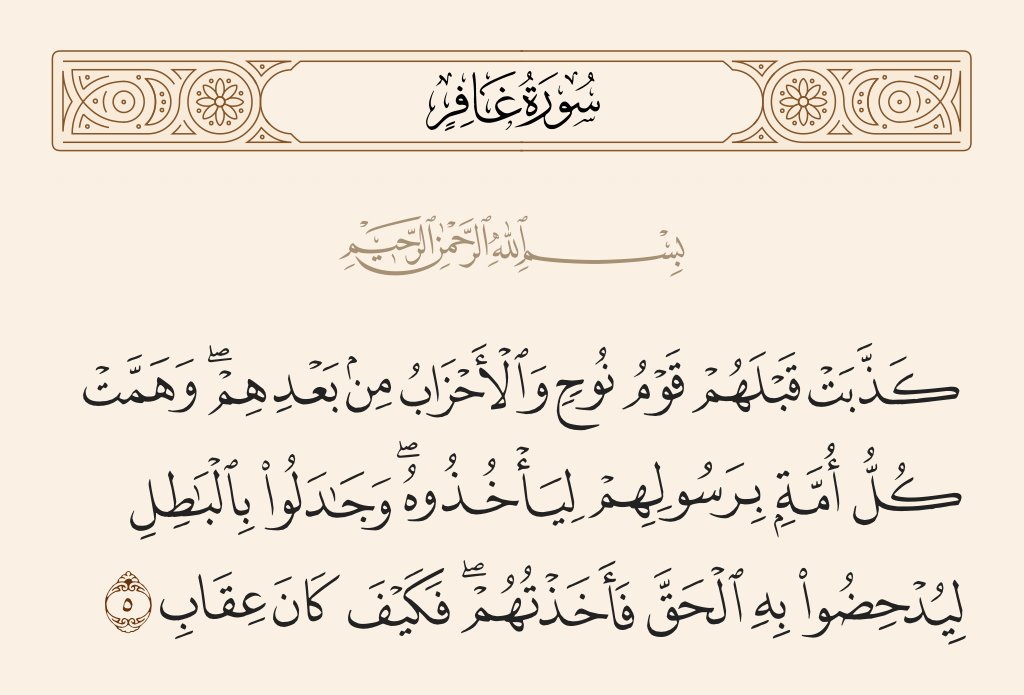 سُورَةُ غَافِرٍ
بِسْمِ ٱللَّهِ ٱلرَّحْمَٰنِ ٱلرَّحِيمِ
كَذَّبَتْ قَبْلَهُمْ قَوْمُ نُوحٍ وَٱلْأَحْزَابُ مِنۢ بَعْدِهِمْ ۖ وَهَمَّتْ
كُلُّ أُمَّةٍۭ بِرَسُولِهِمْ لِيَأْخُذُوهُ ۖ وَجَٰدَلُوا۟ بِٱلْبَٰطِلِ
لِيُدْحِضُوا۟ بِهِ ٱلْحَقَّ فَأَخَذْتُهُمْ ۖ فَكَيْفَ كَانَ عِقَابِ ٥